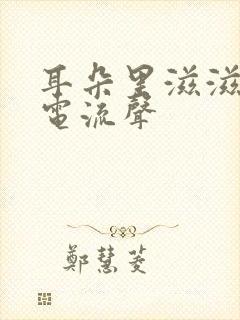 耳朵里滋滋
電流聲
鄭慧菱